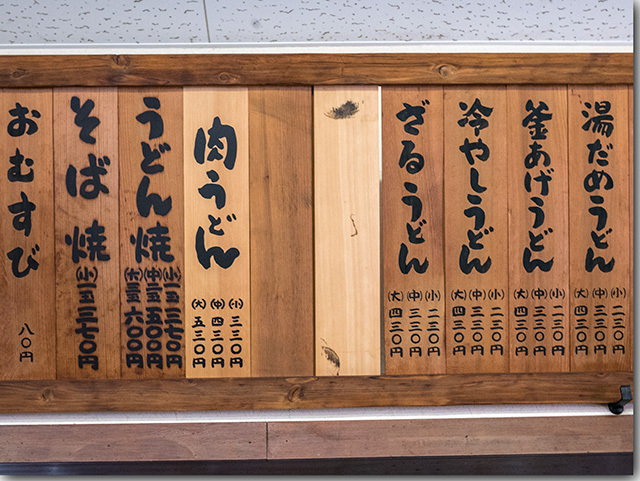 湯だめうどん
(小)二三〇円
(中)三三〇円
(大)四三〇円
釜あげうどん
(小)二三〇円
(中)三三〇円
(大)四三〇円
冷やしうどん
(小)二三〇円
(中)三三〇円
(大)四三〇円
ざるうどん
(小)二三〇円
(中)三三〇円
(大)四三〇円
肉うどん
(小)三三〇円
(中)四三〇円
(大)五三〇円
うどん焼
(小)一玉三七〇円
(中)二玉五〇〇円
(大)三玉六〇〇円
そば焼
(小)一玉三七〇円
おむすび
八〇円